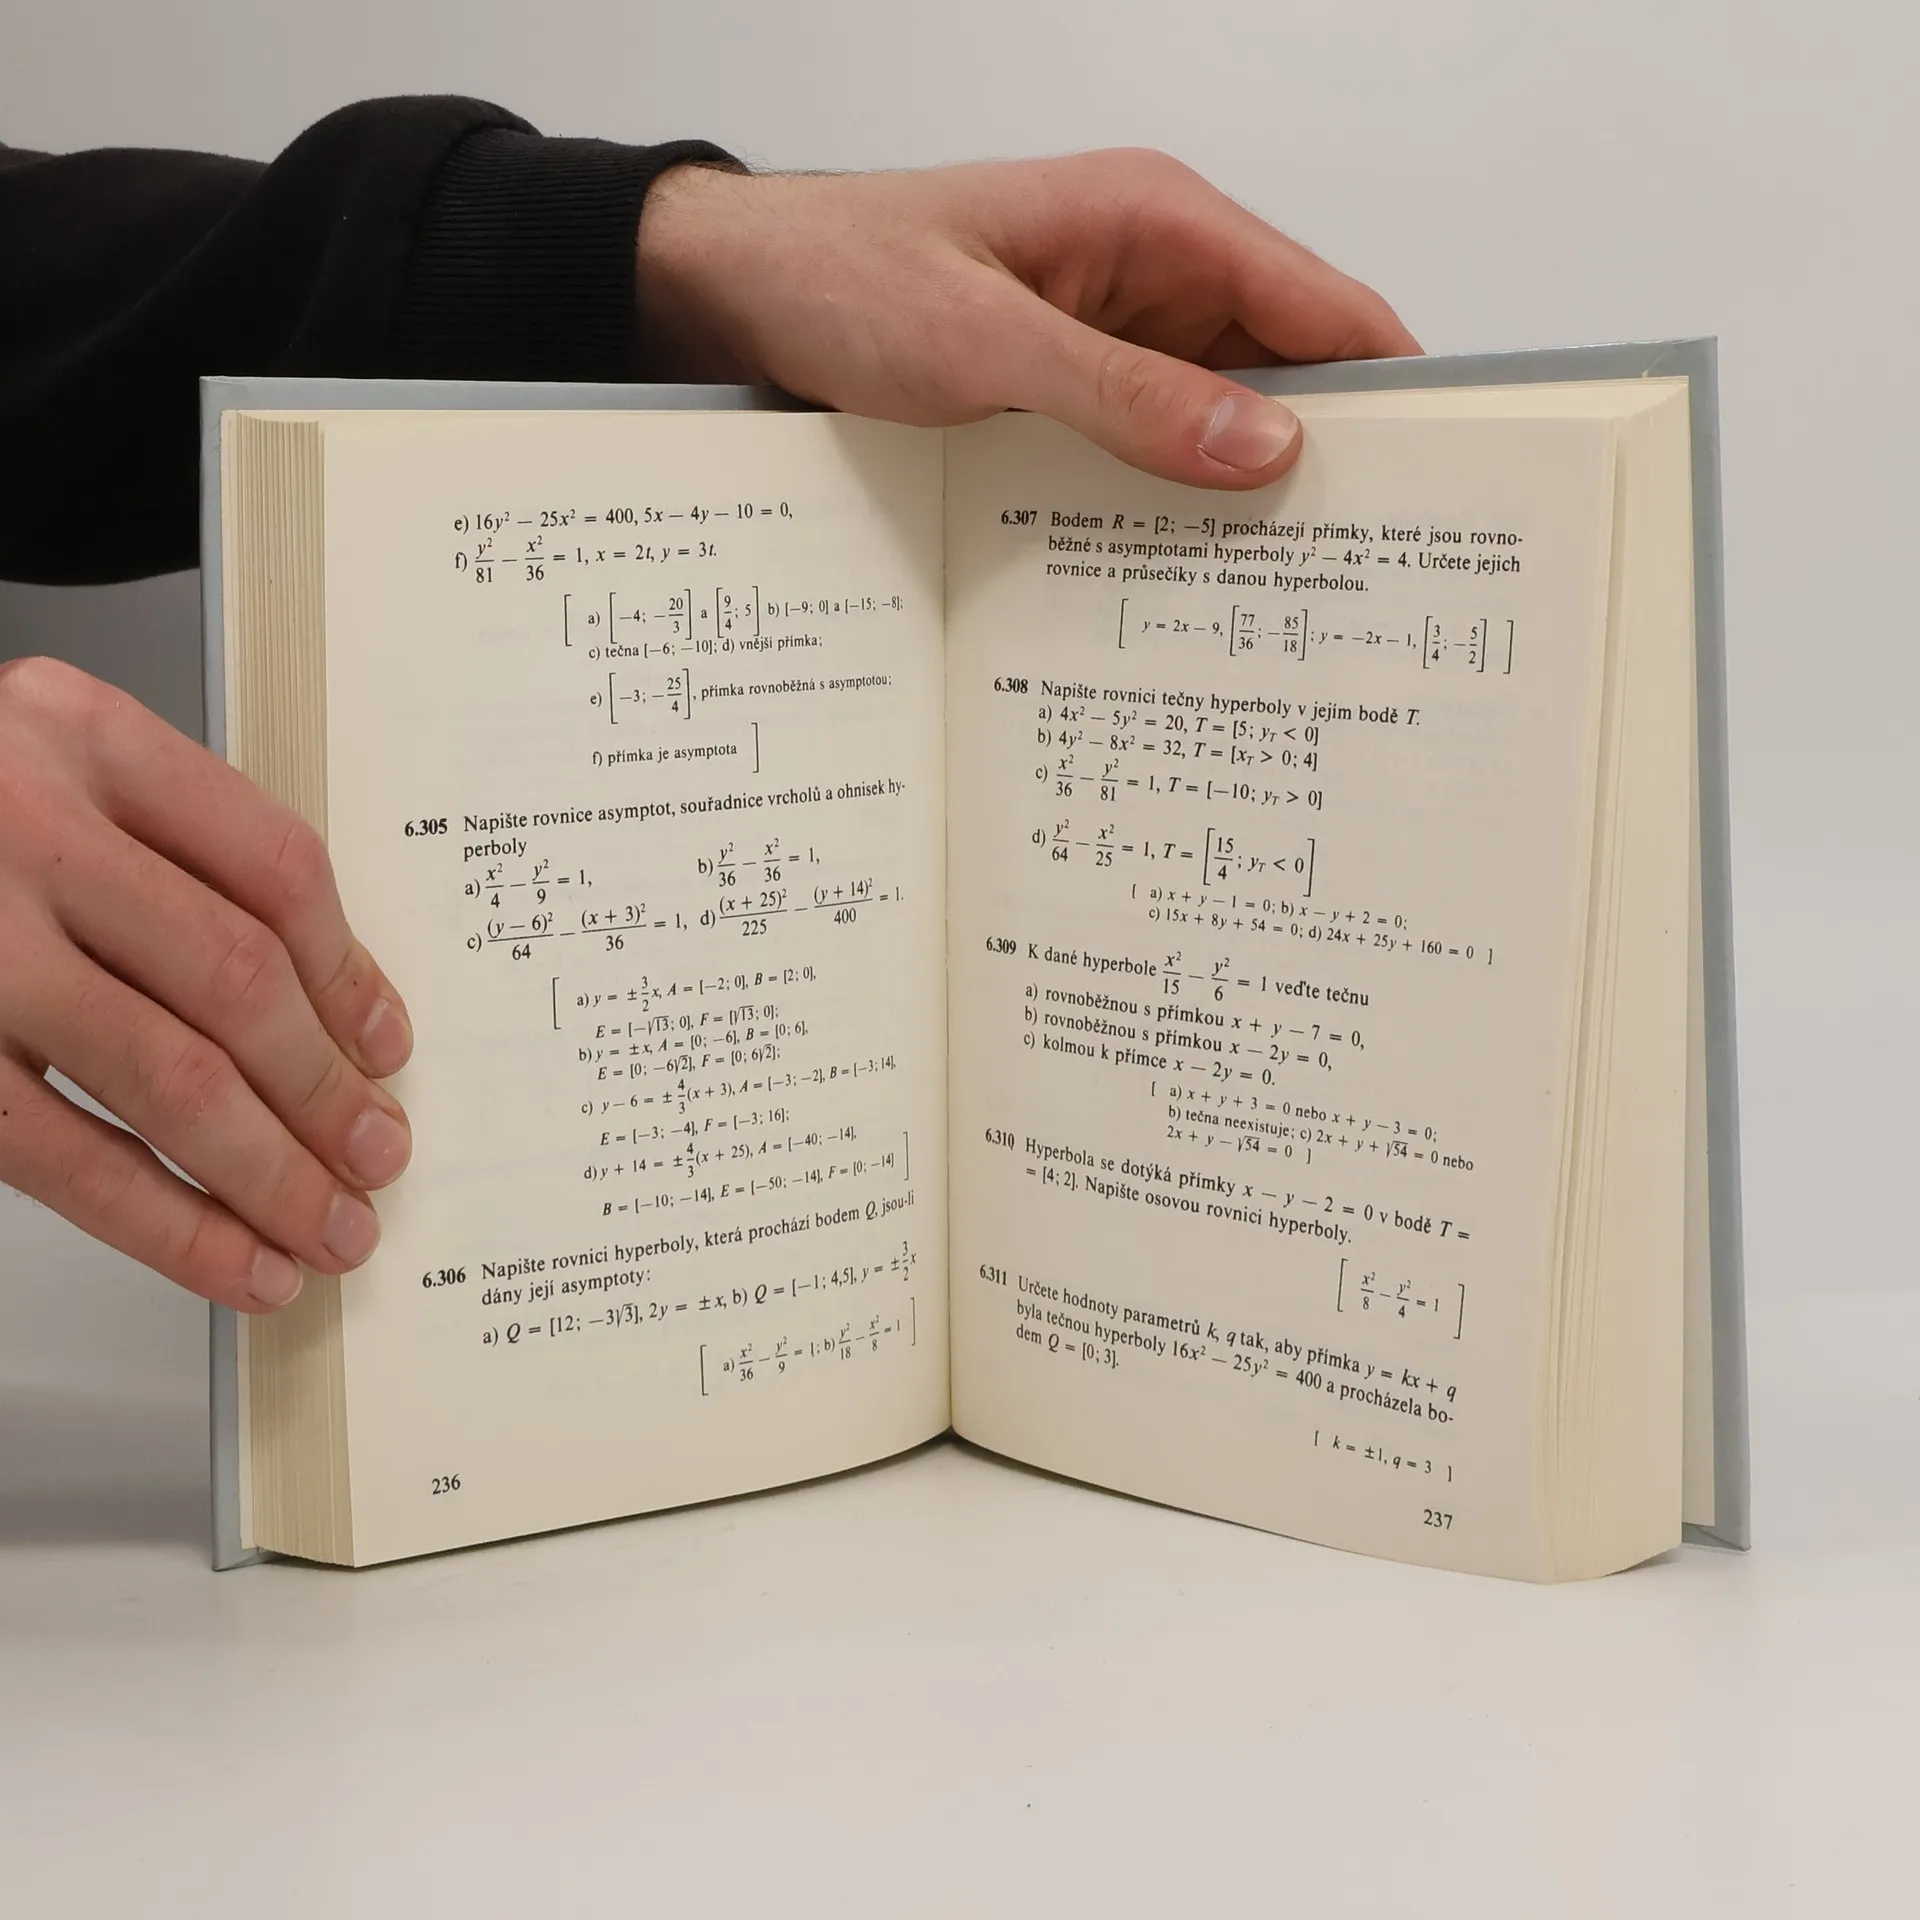 e) 16y² — 25x² = 400, 5x — 4y — 10 = 0,
f) y²/81 — x²/36 = 1, x = 2t, y = 3t.
[ a) [—4; —20/3] a [9/4; 5] b) [—9; 0] a [—15; —8];
c) tečna [—6; —10]; d) vnější přímka;
e) [—3; —25/4], přímka rovnoběžná s asymptotou;
f) přímka je asymptota ]
6.305 Napište rovnice asymptot, souřadnice vrcholů a ohnisek hy-
perboly
a) x²/4 — y²/9 = 1, b) y²/36 — x²/36 = 1,
c) (y — 6)²/64 — (x + 3)²/36 = 1, d) (x + 25)²/225 — (y + 14)²/400 = 1.
[ a) y = ±3/2x, A = [—2; 0], B = [2; 0],
E = [—√13; 0], F = [√13; 0];
b) y = ±x, A = [0; —6], B = [0; 6],
E = [0; —6√2], F = [0; 6√2];
c) y — 6 = ±4/3(x + 3), A = [—3; —2], B = [—3; 14],
E = [—3; —4], F = [—3; 16];
d) y + 14 = ±4/3(x + 25), A = [—40; —14],
B = [—10; —14], E = [—50; —14], F = [0; —14] ]
6.306 Napište rovnici hyperboly, která prochází bodem Q, jsou-li
dány její asymptoty:
a) Q = [12; —3√3], 2y = ±x, b) Q = [—1; 4,5], y = ±3/2x
[ a) x²/36 — y²/9 = 1; b) y²/18 — x²/8 = 1 ]
236
6.307 Bodem R = [2; —5] procházejí přímky, které jsou rovno-
běžné s asymptotami hyperboly y² — 4x² = 4. Určete jejich
rovnice a průsečíky s danou hyperbolou.
[ y = 2x — 9, [77/36; —85/18]; y = —2x — 1, [3/4; —5/2] ]
6.308 Napište rovnici tečny hyperboly v jejím bodě T.
a) 4x² — 5y² = 20, T = [5; y_T < 0]
b) 4y² — 8x² = 32, T = [x_T > 0; 4]
c) x²/36 — y²/81 = 1, T = [—10; y_T > 0]
d) y²/64 — x²/25 = 1, T = [15/4; y_T < 0]
[ a) x + y — 1 = 0; b) x — y + 2 = 0;
c) 15x + 8y + 54 = 0; d) 24x + 25y + 160 = 0 ]
6.309 K dané hyperbole x²/15 — y²/6 = 1 veďte tečnu
a) rovnoběžnou s přímkou x + y — 7 = 0,
b) rovnoběžnou s přímkou x — 2y = 0,
c) kolmou k přímce x — 2y = 0.
[ a) x + y + 3 = 0 nebo x + y — 3 = 0;
b) tečna neexistuje; c) 2x + y + √54 = 0 nebo
2x + y — √54 = 0 ]
6.310 Hyperbola se dotýká přímky x — y — 2 = 0 v bodě T =
= [4; 2]. Napište osovou rovnici hyperboly.
[ x²/8 — y²/4 = 1 ]
6.311 Určete hodnoty parametrů k, q tak, aby přímka y = kx + q
byla tečnou hyperboly 16x² — 25y² = 400 a procházela bo-
dem Q = [0; 3].
[ k = ±1, q = 3 ]
237